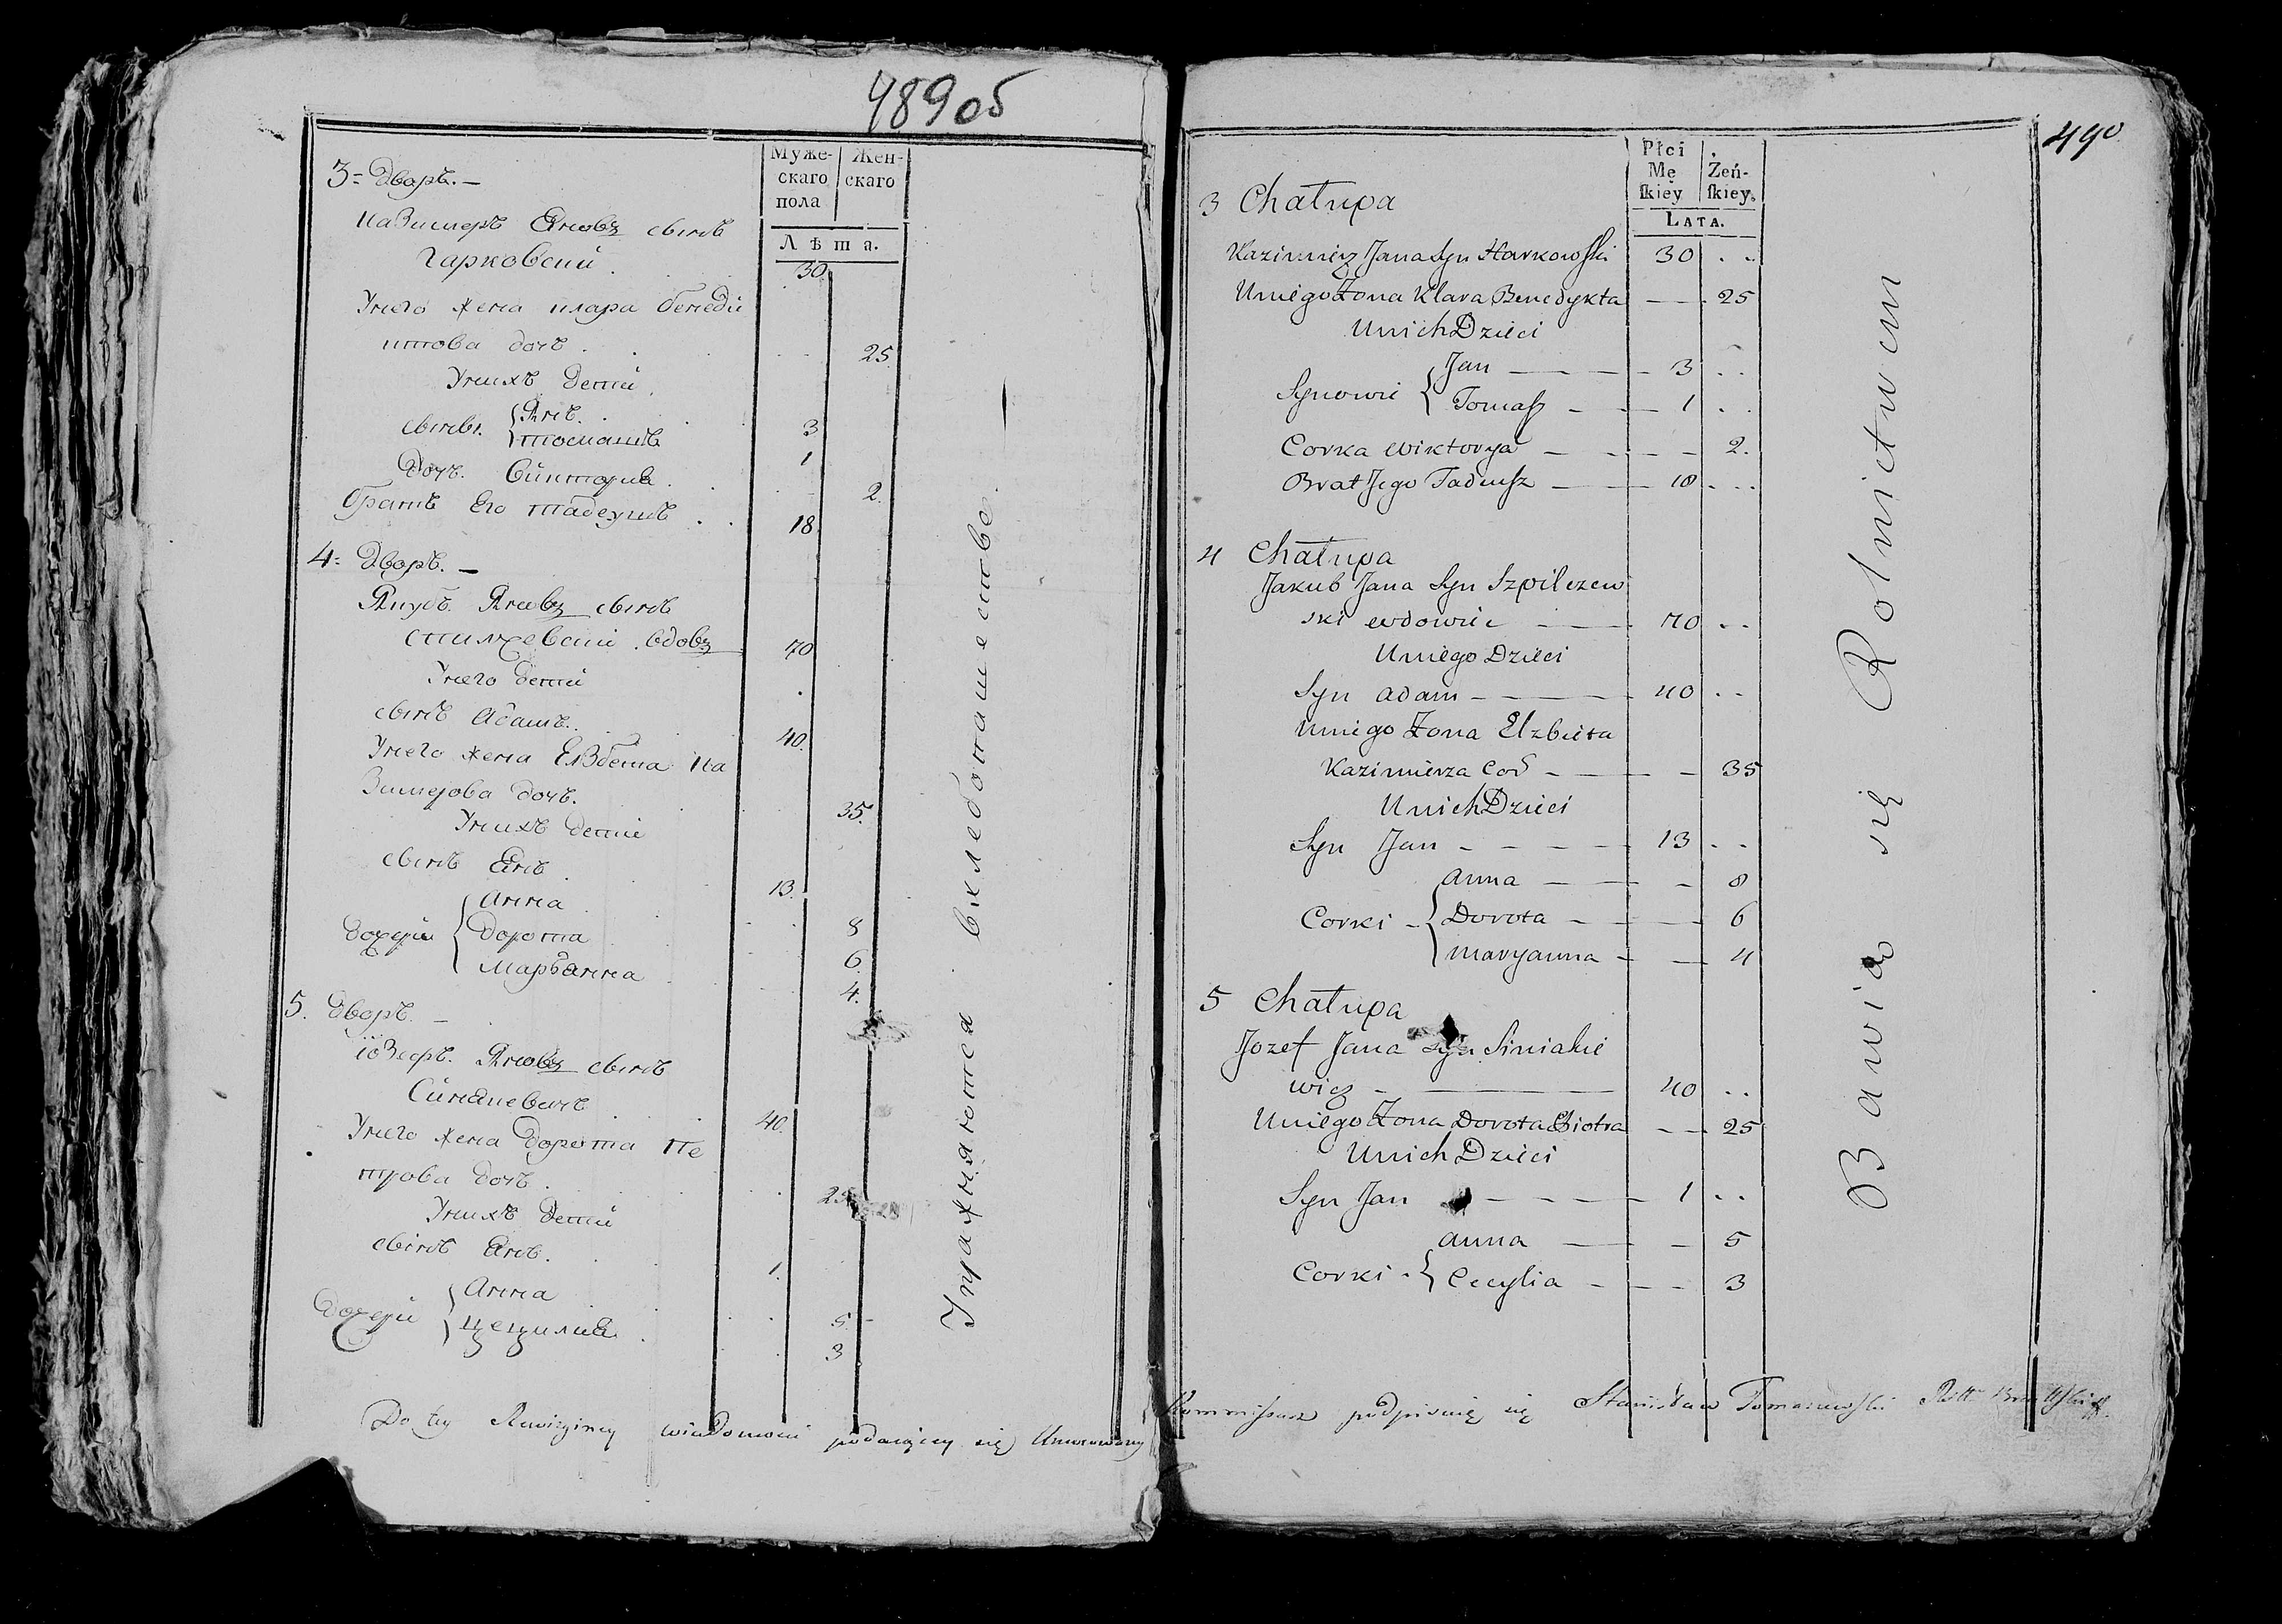 489 об
3 = Дворъ. —
Муже-
скаго
пола
Жен-
скаго
Лѣта.
Казимеръ Яновъ сынъ
Гарковскій . 30.
Унего жена клара бенеди
ктова дочь . . 25
Унихъ детей
сыны. { Янъ. 3
томашъ 1
Дочь. Викториа . 2.
братъ Его тадеушъ . . 18.
4 = Дворъ. —
Якубъ. Яновъ сынъ
вдовъ 70
Унего дети
сынъ Адамъ. 40.
Унего жена Елзбета Ка
зимерова дочь. 35.
Унихъ дети
сынъ Янъ . 13.
дочери { Анна 8
Дорота 6.
Марьянна 4.
5. Дворъ. —
іозефъ. Яновъ сынъ
Синякевичъ 40.
Унего жена Дорота Пе
трова дочь . 25
Унихъ дети
сынъ Янъ. 1.
Дочери { Анна 5. -
Цецилиа . 3
Упражняются вхлебопашестве.
Do tey wiadomosci podaiący się
490
Płci
Mę
ſkiey
Żeń-
ſkiey.
LATA.
3 Chałupa
Kazimierz Jana Syn Harkowski 30 . .
Uniego Żona Klara Benedykta — . 25
Unich Dzieci
Synowie { Jan — 3 . .
Tomasz — 1 . .
Corka Wiktorya — — 2.
Brat Jego Tadeusz — 18 . .
4 Chałupa
Jakub Jana Syn Szpilczew
ski wdowiec — 70 . .
Uniego Dzieci
Syn Adam — 40 . .
Uniego Żona Elzbieta
Kazimierza Cor — — 35
Unich Dzieci
Syn Jan — 13 . .
Corki - { Anna — — 8
Dorota — — 6
Maryanna — — 4
5 Chałupa
Jozef Jana Syn Siniakie
wicz — 40 . .
Uniego Żona Dorota Piotra — — 25
Unich Dzieci
Syn Jan — 1 . .
Corki - { Anna — — 5
Cecylia — — 3
Bawią się Rolnictwem
podpisuię się Stanisław